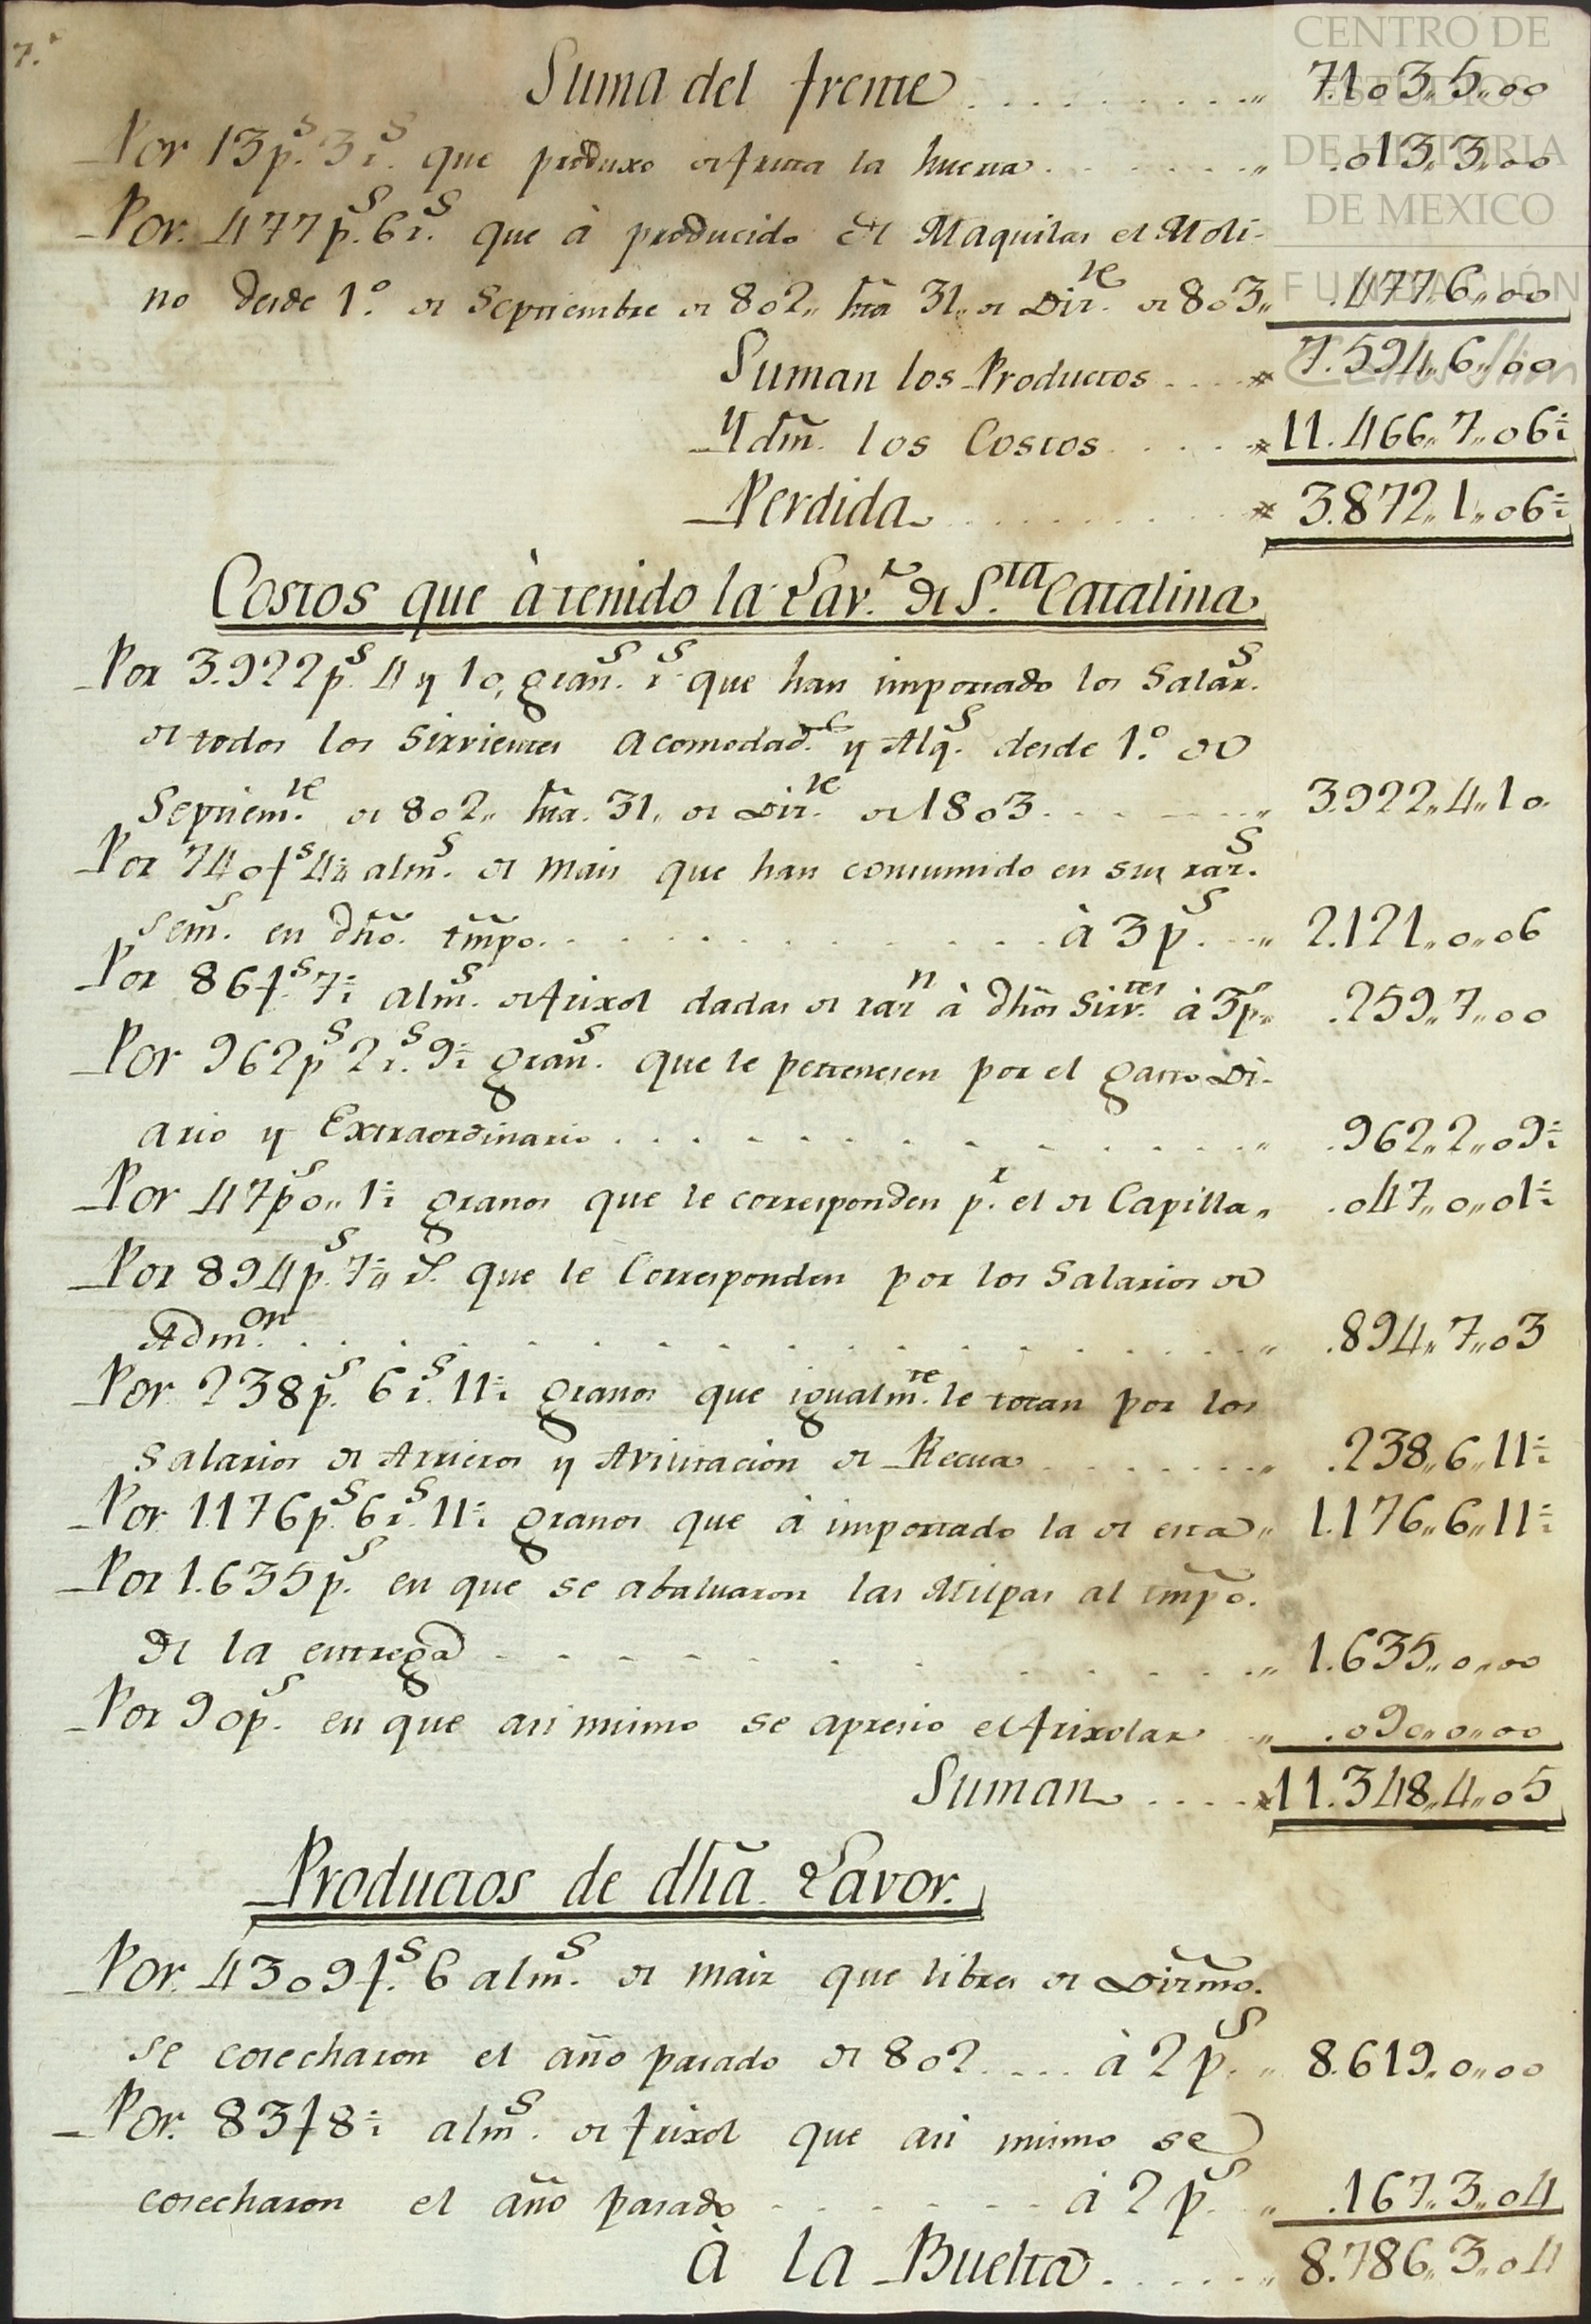 7.
CENTRO DE
ESTUDIOS
DE HISTORIA
DE MEXICO
FUNDACIÓN
Carlos Slim
Suma del frente . . . . . . . . . . „ 7.103„5„00
Por 13p.s 3r.s que produxo de fruta la huerta . . . . . . „ .013„3„00
Por. 477p.s 6r.s que à producido de Maquilas el Moli-
no desde 1.o de Septiembre de 802„ hta 31„ de Diz.re de 803„ .477„6„00
Suman los Productos . . . . 7.594„6„00
Ydm̃. los Costos . . . . 11.466„7„06½
Perdida . . . . . . . . 3.872„1„06½
Costos que à tenido la Lav.r de S.ta Catalina
Por 3.922p.s 4 y 10, gran.s r.s que han importado los Salar.s
de todos los Sirvientes Acomodad.s y Alq.s desde 1.o de
Septiem.re de 802„ hta. 31, de Diz.re de 1803 . . . . . „ 3.922„4„10.
Por 740f.s 4½ alm.s de mais que han consumido en sus rar.s
sem.s en dho. tmpo. . . . . . . . . . . . . à 3p.s . . „ 2.121„0„06
Por 86f.s 7½ alm.s de frixol dadas de rar.n à dhos Sirv.tes à 3p.s „ .259„7„00
Por 962p.s 2r.s 9½ gran.s que le pertenesen por el gasto Di-
ario y Extraordinario . . . . . . . . . . . . . „ .962„2„09½
Por 47p.s 0„ 1½ granos que le corresponden p.r el de Capilla„ .047„0„01½
Por 894p.s 7¼ r.s que le Corresponden por los Salarios de
Adm.on . . . . . . . . . . . . . . . . „ .894„7„03
Por 238p.s 6r.s 11½ granos que igualm.te le tocan por los
Salarios de Arrieros y Avilitacion de Recua . . . . . . . „ .238„6„11½
Por 1176p.s 6r.s 11½ granos que à importado la de esta„ 1.176„6„11½
Por 1.635p.s en que se abaluaron las Milpas al tmpo.
de la entrega . . . . . . . . . . . . . „ 1.635„0„00
Por 90p.s en que asi mismo se apresio el frixolar „ .090„0„00
Suman . . . . 11.348„4„05
Productos de dha. Lavor.
Por. 4309f.s 6 alm.s de maiz que libres de Diezmo.
se cosecharon el año pasado de 802 . . . . à 2p.s „ 8.619„0„00
Por. 83f 8½ alm.s de frixol que asi mismo se
cosecharon el año pasado . . . . . . . à 2p.s „ .167„3„04
à la Buelta . . . . . . „ 8.786„3„04